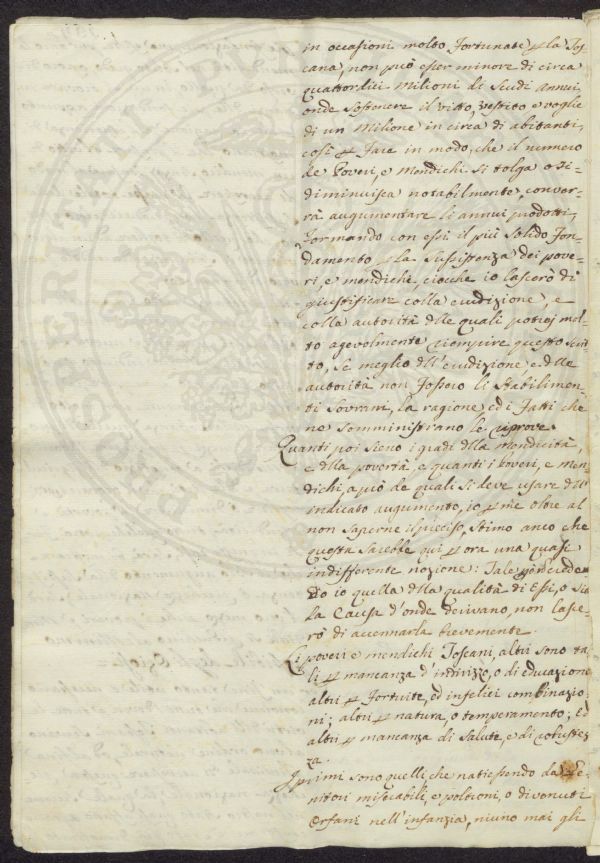 in occasioni molto fortunate p la Tos
cana, non può esser minore di circa
quattordici Milioni di Scudi Annui
onde sostenere il vitto, vestito e voglie
di un Milione in circa di abitanti,
così p fare in modo, che il numero
de Poveri, e Mendichi si tolga o si
diminuisca notabilmente, conver-
rà augumentare li annui prodotti,
formando con essi il più solido fon-
damento p la sussistenza dei pove-
ri, e mendichi, ciocche io lascerò di
giustificare colla erudizione, e
colla autorità dlle quali potrej mol-
to agevolmente riempire questo scrit-
to, se meglio dll'erudizione e dlla
autorità non fossero li stabilimen-
ti Sovrani, la ragione, ed i fatti che
ne somministrano le riprove.
Quanti poi sieno i gradi dlla mendicità,
e dlla povertà, e quanti i Poveri, e men-
dichi, a prò de quali si deve usare dll'
indicato augumento, io p me oltre al
non saperne il preciso, stimo anco che
questa sarebbe qui p ora una quasi
indifferente nozione: Tale non creden-
do io quella dlla qualità di Essi, o sia
la Causa d'onde derivano, non lasce-
rò di accennarla brevemente.
Li poveri e mendichi Toscani, altri sono ta-
li p mancanza d'indirizzo, o di educazione
altri p fortuite, ed infelici combinazio-
ni; altri p natura, o temperamento; Ed
altri p mancanza di salute, e di robustez-
za.
I primi sono quelli, che nati essendo da Ge-
nitori miserabili, e poltroni, o divenuti
Orfani nell'infanzia, niuno mai gli
PUBLI
DOSPERITATI